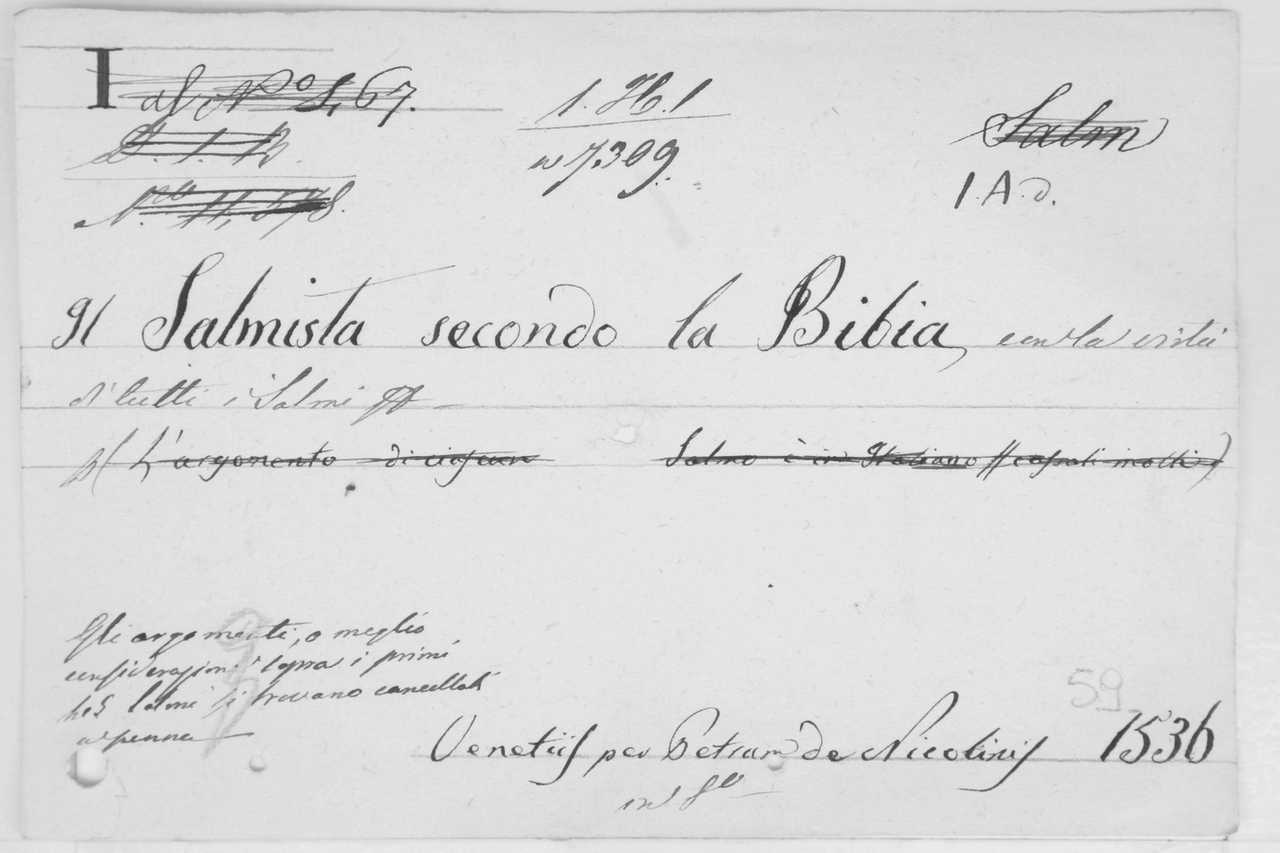 I al N.º S, 67.
D. 1. B.
N.ro 11,578.
1. H. 1
a 7309.
Salm
1. A. d.
Il Salmista secondo la Bibia, con la virtù
di tutti i Salmi
(L'argomento di ciascun Salmo è in Italiano // cassati molti)
Gli argomenti, o meglio
considerazioni sopra i primi
Salmi si trovano cancellati
a penna
59
Venetiis per Petrum de Nicolinis 1536
in 8º